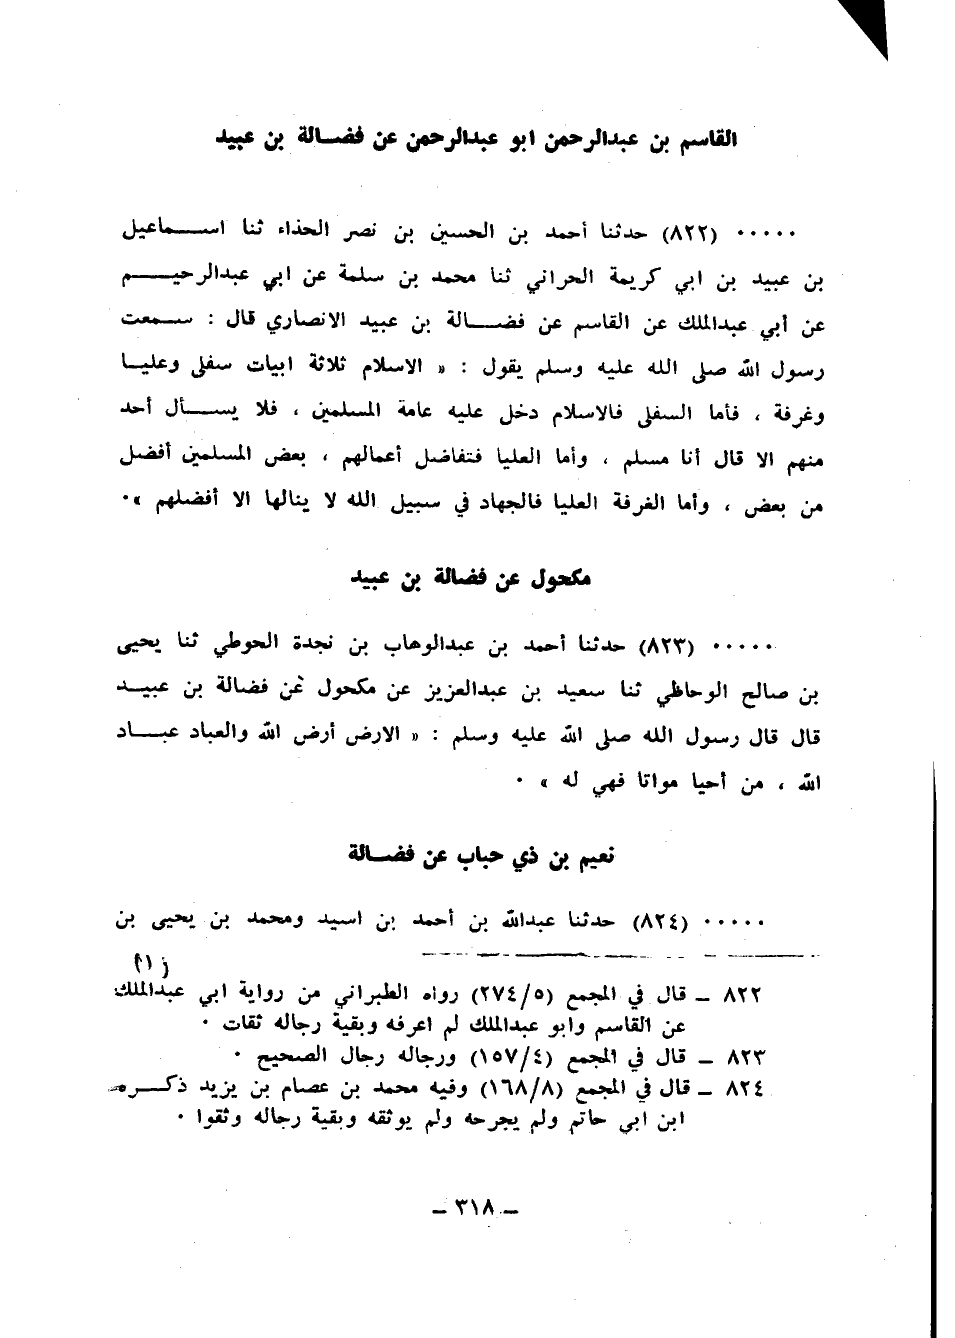 القاسم بن عبدالرحمن ابو عبدالرحمن عن فضالة بن عبيد
٠٠٠٠٠ (٨٢٢) حدثنا أحمد بن الحسين بن نصر الحذاء ثنا اسماعيل
بن عبيد بن ابي كريمة الحراني ثنا محمد بن سلمة عن ابي عبدالرحيم
عن أبي عبدالملك عن القاسم عن فضالة بن عبيد الانصاري قال : سمعت
رسول الله صلى الله عليه وسلم يقول : « الاسلام ثلاثة ابيات سفلى وعليا
وغرفة ، فأما السفلى فالاسلام دخل عليه عامة المسلمين ، فلا يسأل أحد
منهم الا قال أنا مسلم ، وأما العليا فتفاضل أعمالهم ، بعض المسلمين أفضل
من بعض ، وأما الغرفة العليا فالجهاد في سبيل الله لا ينالها الا أفضلهم »٠
مكحول عن فضالة بن عبيد
٠٠٠٠٠ (٨٢٣) حدثنا أحمد بن عبدالوهاب بن نجدة الحوطي ثنا يحيى
بن صالح الوحاظي ثنا سعيد بن عبدالعزيز عن مكحول عن فضالة بن عبيد
قال قال رسول الله صلى الله عليه وسلم : « الارض أرض الله والعباد عباد
الله ، من أحيا مواتا فهي له » ٠
نعيم بن ذي حباب عن فضالة
٠٠٠٠٠ (٨٢٤) حدثنا عبدالله بن أحمد بن اسيد ومحمد بن يحيى بن
٨٢٢ ــ قال في المجمع (٢٧٤/٥) رواه الطبراني من رواية ابي عبدالملك
عن القاسم وابو عبدالملك لم اعرفه وبقية رجاله ثقات ٠
٨٢٣ ــ قال في المجمع (١٥٧/٤) ورجاله رجال الصحيح ٠
٨٢٤ ــ قال في المجمع (١٦٨/٨) وفيه محمد بن عصام بن يزيد ذكره
ابن ابي حاتم ولم يجرحه ولم يوثقه وبقية رجاله وثقوا ٠
ــ ٣١٨ ــ